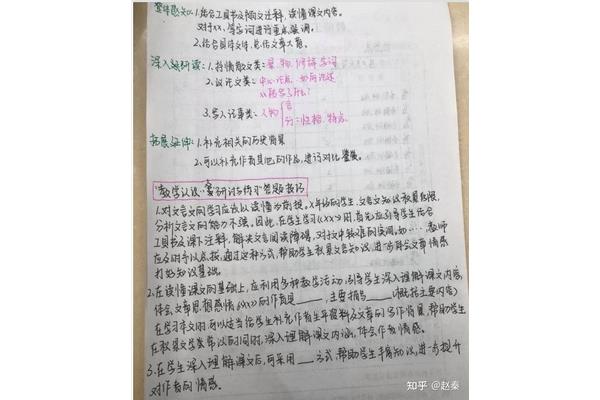 整体感知:1.结合工具书及课文注释,读懂课文内容。
对xx、等字词进行重点强调。
2.结合具体文体,总结文章大意。
深入研读:1.抒情散文类:景、物、修辞、字词
2.议论文类:中心论点、如何论述
以论据了什么?
3.写人记事类:人物 言
行:性格、特点
拓展延伸:1.补充相关的历史背景
2.可以补充作者其他的作品,进行对比鉴赏。
1.对文言文的学习应该以读懂为前提。x年级的学生,文言文知识积累有限,
分析文言文的能力不强。因此,在学生学习《xx》时,首先应引导学生结合
工具书及课下注释,解决文言阅读障碍,对文中较难的实词,如…,教师
应及时予以点拨,通过这种方式,帮助学生积累文言知识,进一步体会文章情感
打好知识基础。
2.在读懂课文的基础上,应利用多种教学活动,引导学生深入理解课文内容,
体会文章思想感情《xx》的作者是____,主要描写____(概括主要内容)
在学习本文时,可以适当给学生补充作者生平资料及文章的写作背景,帮助学生
在积累文学类常识的同时,深入理解课文内涵,体会作者情感。
3.在学生深入理解课文后,可采用____方式,帮助学生丰富知识,进一步提升
对作者的情感。
知乎 @赵秦